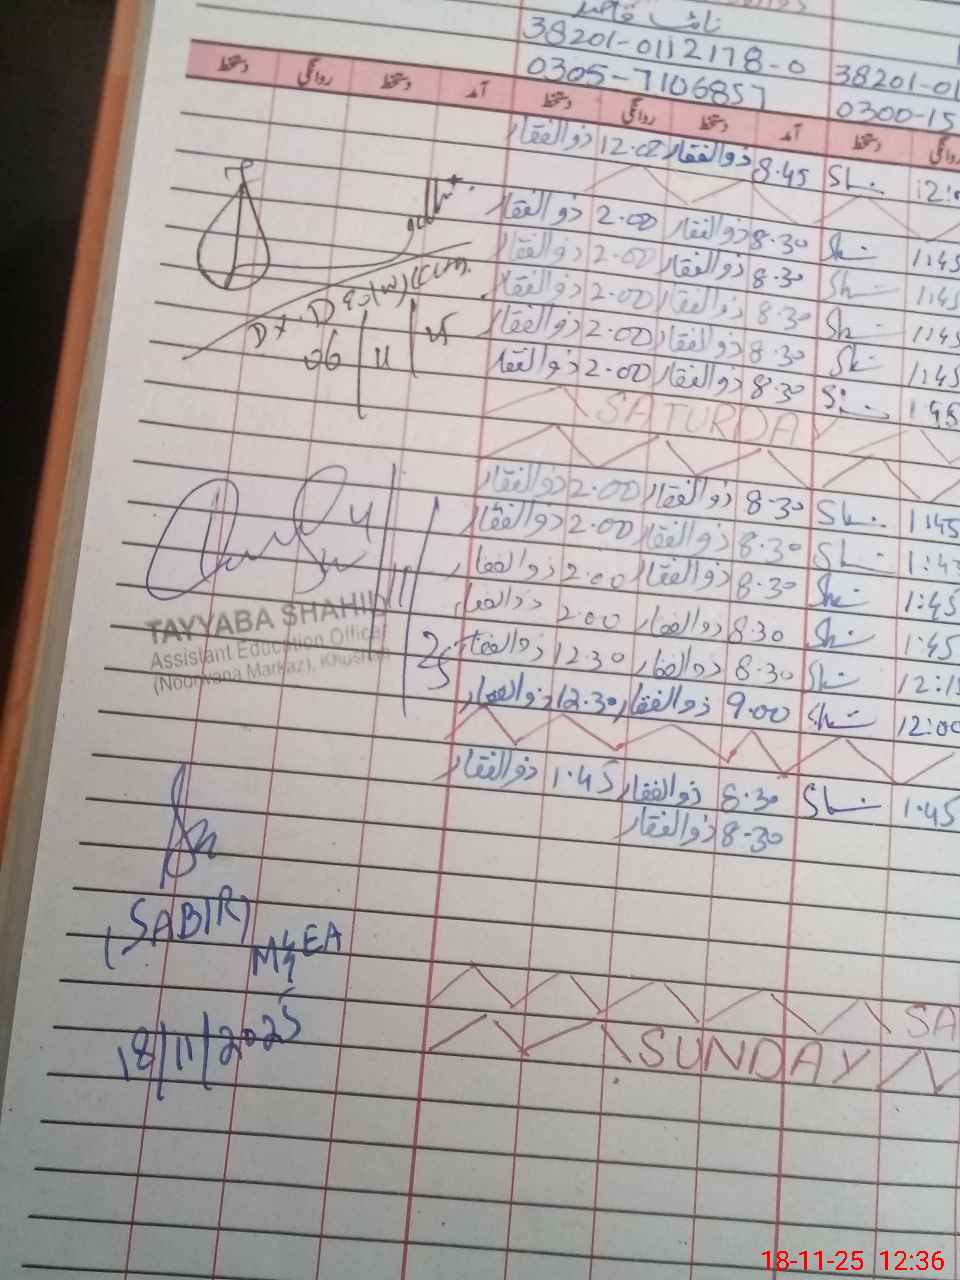 نائب قاصد
38201-0112178-0 38201-01
0305-7106857 0300-15
دستخط روانگی دستخط آمد دستخط روانگی دستخط آمد دستخط روانگی
ذوالفقار 12.00 ذوالفقار 8.45
ذوالفقار 2.00 ذوالفقار 8.30 1:45
ذوالفقار 2.00 ذوالفقار 8.30 1:45
ذوالفقار 2.00 ذوالفقار 8.30 1:45
ذوالفقار 2.00 ذوالفقار 8.30 1:45
ذوالفقار 2.00 ذوالفقار 8.30 1:45
06 11 25
SATURDAY
ذوالفقار 2.00 ذوالفقار 8.30 1:45
ذوالفقار 2.00 ذوالفقار 8.30 1:45
ذوالفقار 2.00 ذوالفقار 8.30 1:45
ذوالفقار 2.00 ذوالفقار 8.30 1:45
ذوالفقار 12.30 ذوالفقار 8.30
ذوالفقار 12.30 ذوالفقار 9.00 12:00
4/11/25
TAYYABA SHAHID
Assistant Education Officer
(Noorwana Markaz), Khushab
ذوالفقار 1.45 ذوالفقار 8.30 1.45
ذوالفقار 8.30
(SABIR)
M&EA
18/11/2025
SA
SUNDAY
18-11-25 12:36